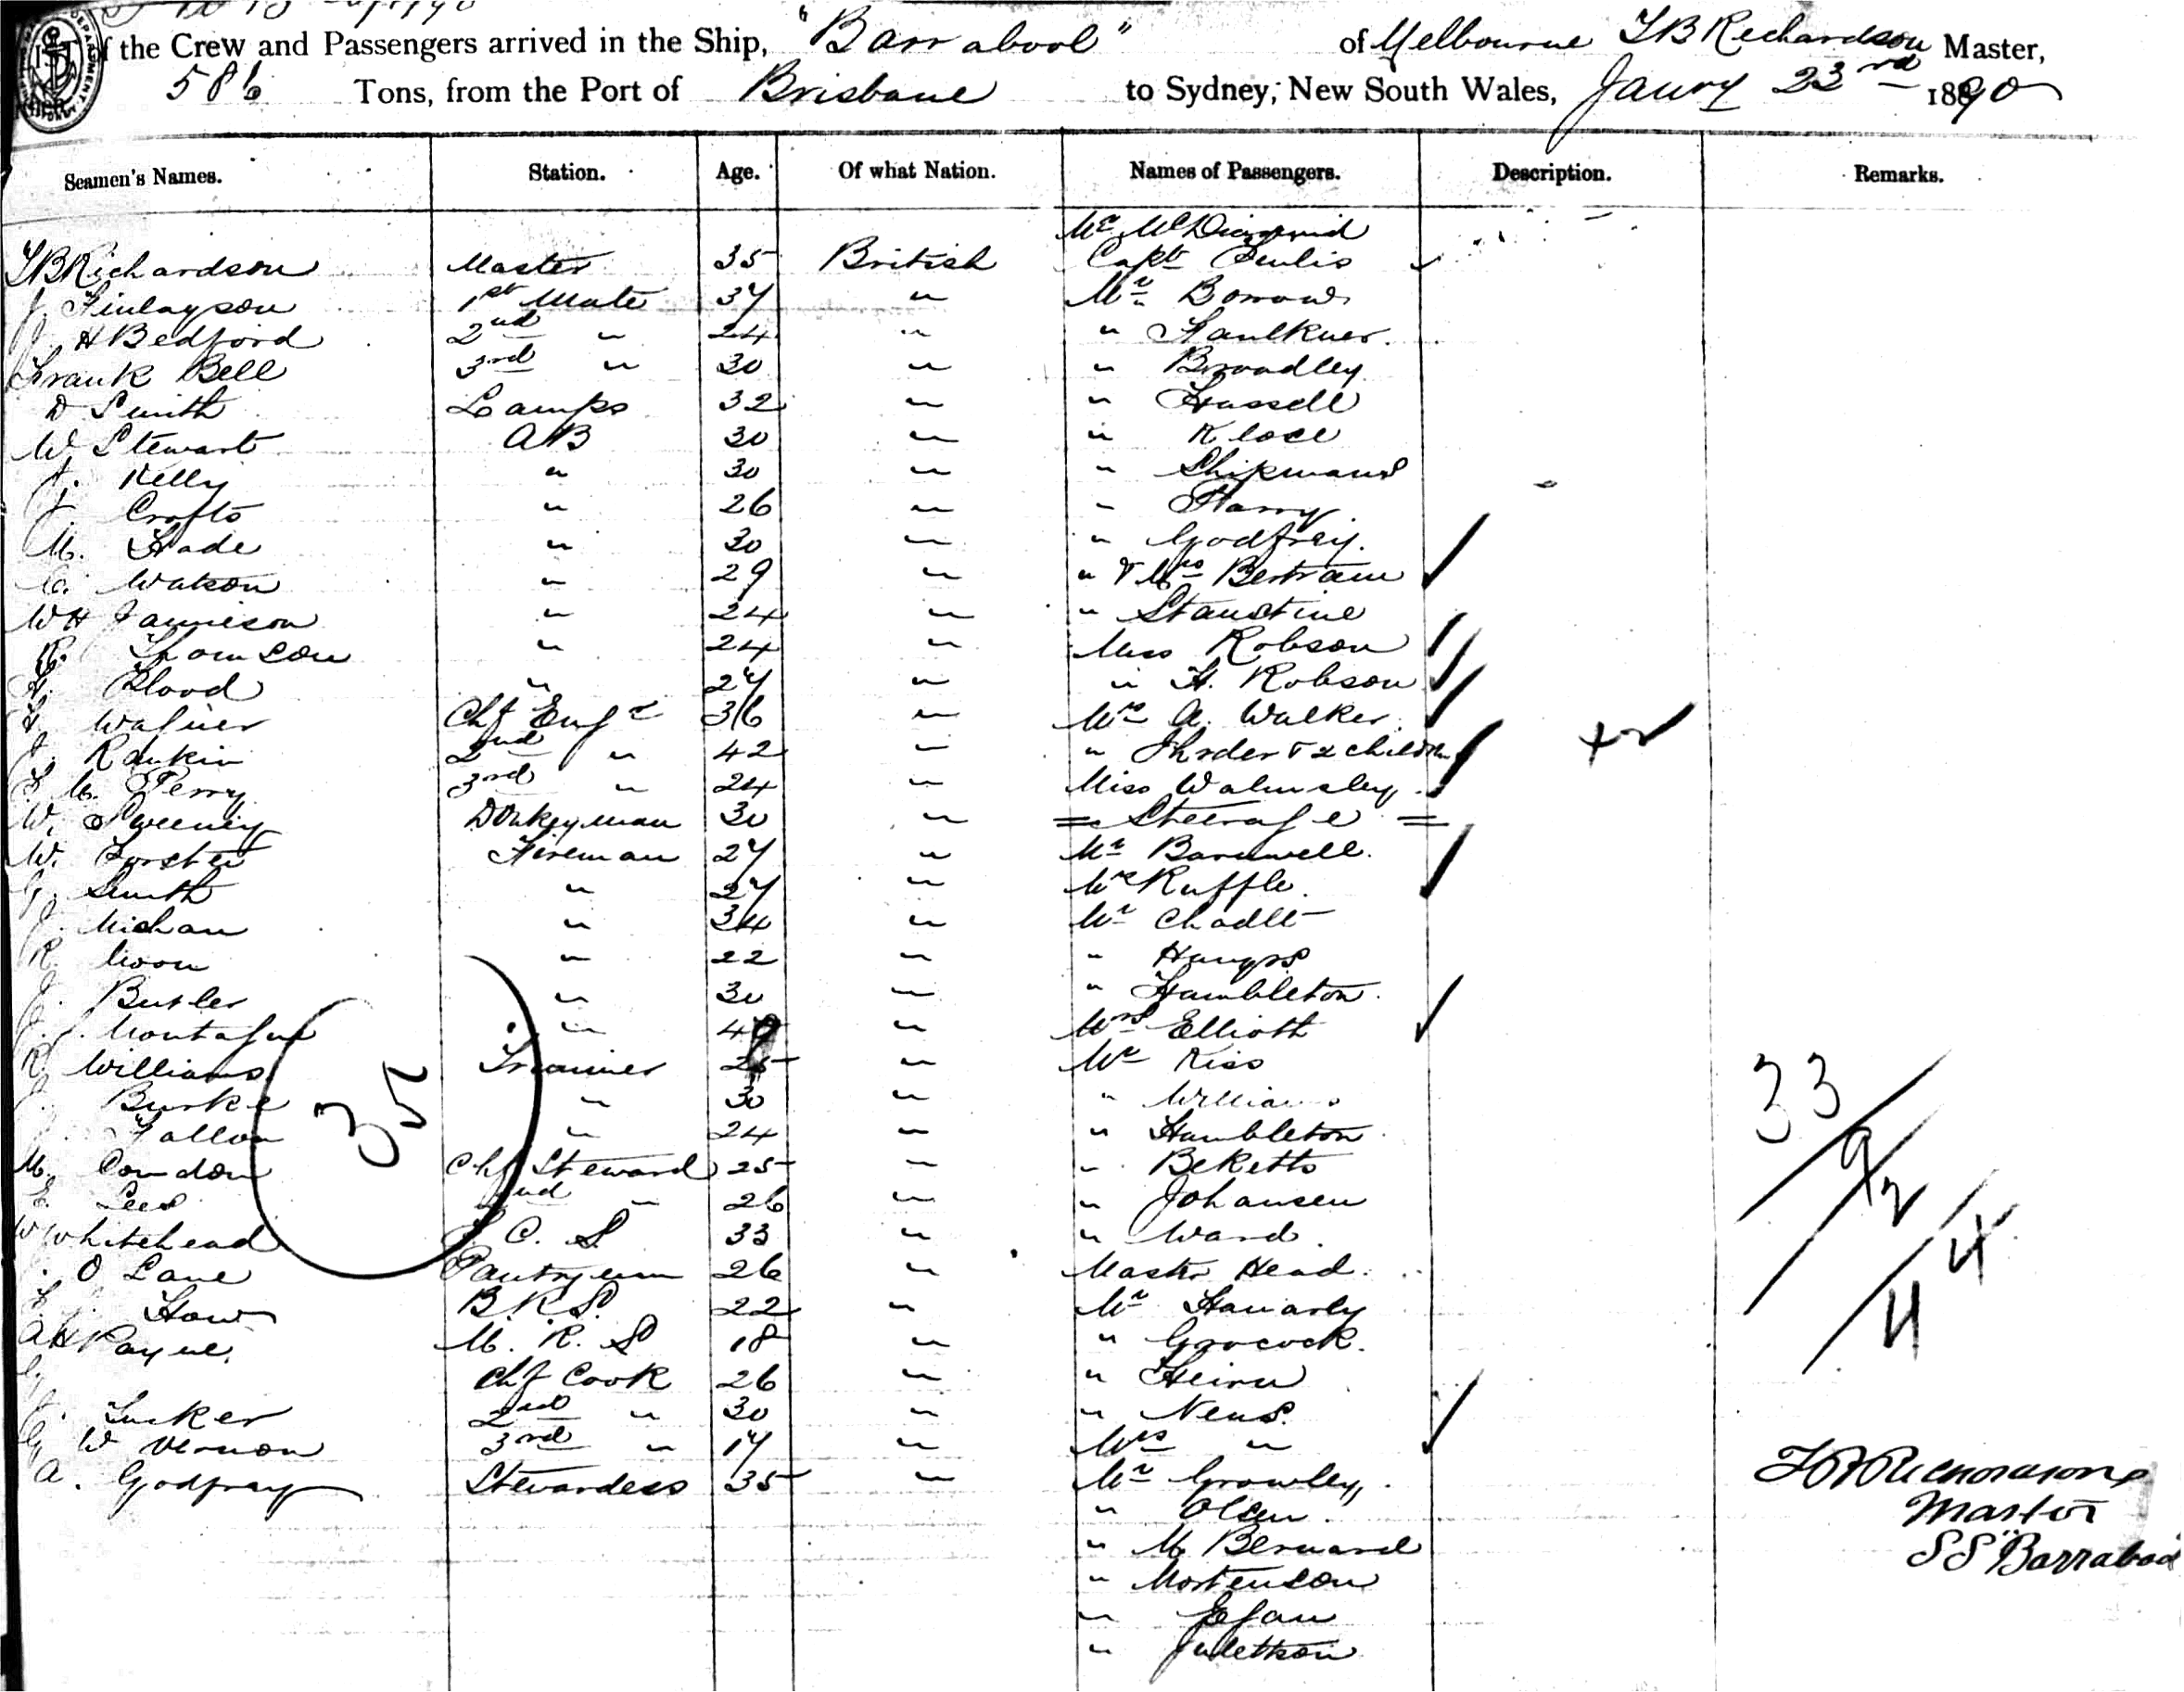 of the Crew and Passengers arrived in the Ship, "Barrabool" of Melbourne T B Richardson Master,
586 Tons, from the Port of Brisbane to Sydney, New South Wales, Jany 23rd 1890
Seamen's Names. Station. Age. Of what Nation. Names of Passengers. Description. Remarks.
Mr McDiarmid
T B Richardson Master 35 British Capt
J Finlayson 1st Mate 37 " Mr Borrows
J H Bedford 2nd " 24 " " Faulkner.
Frank Bell 3rd " 30 " " Broadley
D Smith Lamps 32 " " Hassell
W Stewart AB 30 " " Klose
J. Kelly " 30 " " Shipman
J. Crofts " 26 " " Harry
M. Hade " 30 " " Godfrey.
C. Watson " 29 " " & Mrs Bertram
W H Jamieson " 24 " "
R. Thomson " 24 " Miss Robson
H. Flood " 27 " " H. Robson
Chf Engr 36 " Mrs A. Walker.
J. Rankin 2nd " 42 " " & 2 children
M. Perry 3rd " 24 " Miss Walmsley
W. Sweeney Donkeyman 30 " = Steerage =
W. Forster Fireman 27 " Mr Barnwell.
G. Smith " 27 " Mr Ruffle.
J. " 34 " Mr
R. Moon " 22 " "
J. Butler " 30 " " Hambleton.
J. Montague " " Mrs Elliott
R. Williams Trimmer 25 " Mr Kiss
J. Burke " 30 " " Williams
J. Fallon " 24 " " Hambleton
M. Condon Chf Steward 25 " " Beketts
E. Lees 2nd " 26 " " Johansen
W Whitehead F. C. S. 33 " " Ward.
O Lane Pantryman 26 " Master Head.
How B. R. S. 22 " Mr Hanarly
A H Payne. M. R. S 18 " " Grocock.
G Chf Cook 26 " "
J. Tucker 2nd " 30 " "
G W Vernon 3rd " 17 " Mrs "
A. Godfrey Stewardess 35 " Mr Growley,
" Olsen.
" M Bernard
" Mortenson
" Egan
"
35
33
9
2
4
4
T B Richardson
Master
SS "Barrabool